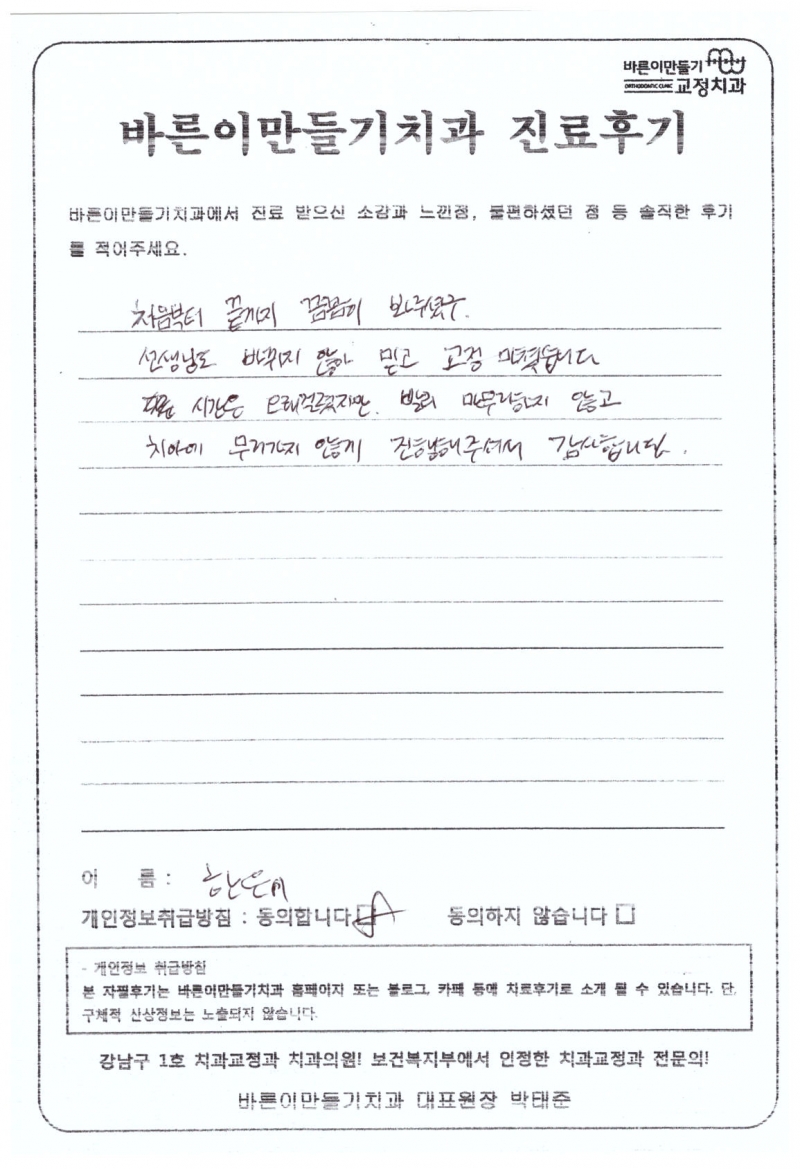 바른이만들기
ORTHODONTIC CLINIC 교정치과
바른이만들기치과 진료후기
바른이만들기치과에서 진료 받으신 소감과 느낀점, 불편하셨던 점 등 솔직한 후기
를 적어주세요.
처음부터 끝까지 꼼꼼히 봐주셨구.
선생님도 바뀌지 않아 믿고 교정 마쳤습니다
시간은 오래걸렸지만. 빨리 마무리하지 않고
치아에 무리가지 않게 진행해주셔서 감사합니다.
이 름 :
개인정보취급방침 : 동의합니다 동의하지 않습니다
- 개인정보 취급방침
본 자필후기는 바른이만들기치과 홈페이지 또는 블로그, 카페 등에 치료후기로 소개 될 수 있습니다. 단,
구체적 신상정보는 노출되지 않습니다.
강남구 1호 치과교정과 치과의원! 보건복지부에서 인정한 치과교정과 전문의!
바른이만들기치과 대표원장 박태준